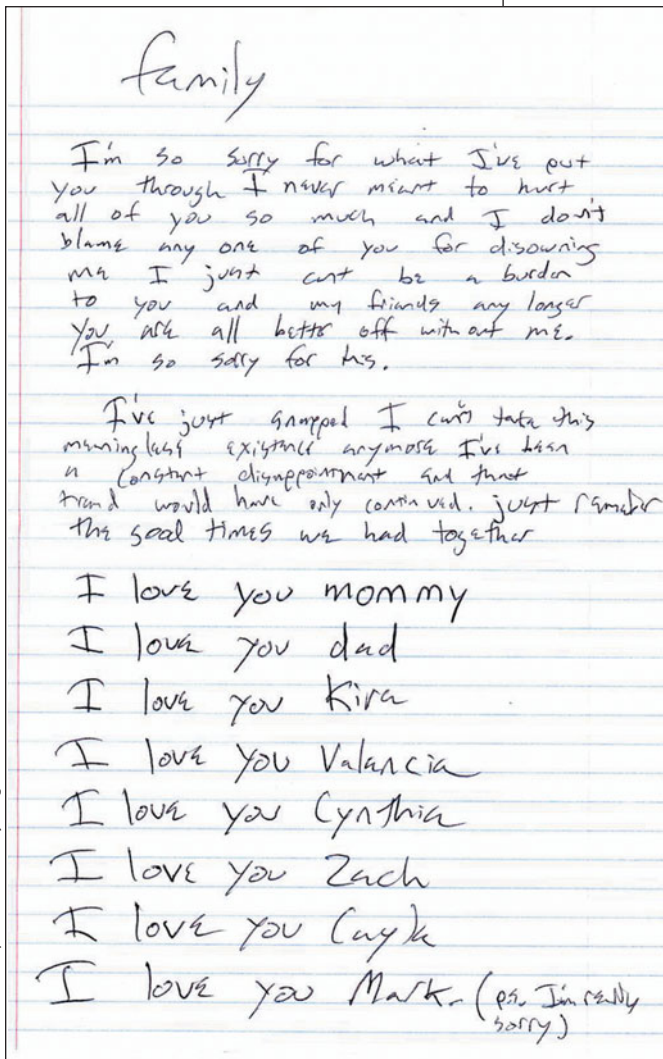 family
I'm so sorry for what I've put
you through I never meant to hurt
all of you so much and I don't
blame any one of you for disowning
me I just cant be a burden
to you and my friends any longer
You are all better off without me.
I'm so sorry for this.
I've just snapped I can't take this
meaningless existance anymore I've been
a constant disappointment and that
trend would have only continued. just remember
the good times we had together
I love you mommy
I love you dad
I love you Kira
I love you Valancia
I love you Cynthia
I love you Zach
I love you Cayla
I love you Mark. (ps. I'm really
sorry)